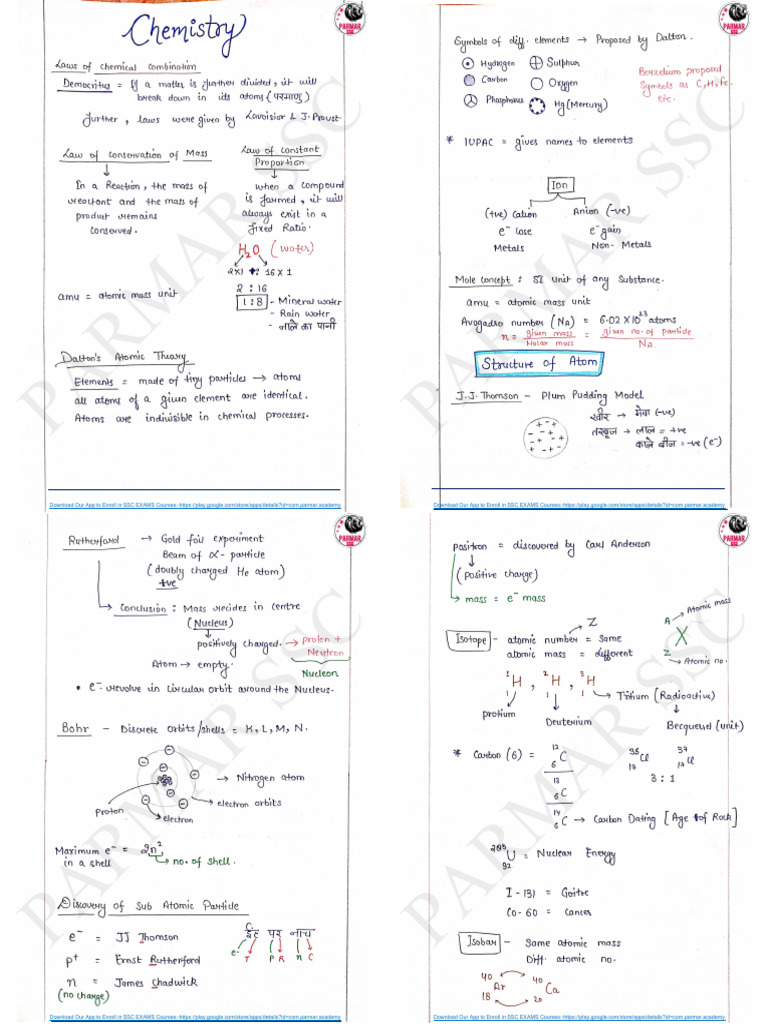 Chemistry
PARMAR
SSC
Laws of chemical combination
Democritus = If a matter is further divided, it will
break down in its atoms (परमाणु)
further, laws were given by Lavoisior & J. Proust.
Law of Conservation of Mass
In a Reaction, the mass of
reactant and the mass of
product remains
conserved.
Law of constant
Proportion
when a compound
is formed, it will
always exist in a
fixed Ratio.
H₂O (water)
2×1 : 16×1
2 : 16
1:8 - Mineral water
- Rain water
- नाले का पानी
amu = atomic mass unit
Dalton's Atomic Theory
Elements = made of tiny particles → atoms
all atoms of a given element are identical.
Atoms are indivisible in chemical processes.
PARMAR SSC
Download Our App to Enroll in SSC EXAMS Courses:-https://play.google.com/store/apps/details?id=com.parmar.academy
PARMAR
SSC
Symbols of diff. elements → Proposed by Dalton.
Hydrogen
Sulphur
Carbon
Oxygen
Phosphorus
Hg (Mercury)
Berzelium proposed
Symbols as C, H, Fe.
Etc.
* IUPAC = gives names to elements
Ion
(+ve) Cation
e⁻ lose
Metals
Anion (-ve)
e⁻ gain
Non-Metals
Mole concept : SI unit of any Substance.
amu = atomic mass unit
Avogadro number (Na) = 6.02 × 10²³ atoms
n = given mass / Molar mass = given no. of particle / Na
Structure of Atom
J.J. Thomson - Plum Pudding Model
खीर → मेवा (-ve)
तरबूज → लाल = +ve
काले बीज = -ve (e⁻)
PARMAR SSC
Download Our App to Enroll in SSC EXAMS Courses:-https://play.google.com/store/apps/details?id=com.parmar.academy
PARMAR
SSC
Rutherford → Gold foil experiment
Beam of α- particle
(doubly charged He atom)
+ve
Conclusion : Mass resides in centre
(Nucleus)
positively charged. → Proton +
Neutron
Nucleon
Atom → empty.
• e⁻ revolve in circular orbit around the Nucleus.
Bohr - Discrete orbits/shells = K, L, M, N.
Nitrogen atom
electron orbits
Proton
electron
Maximum e⁻ = 2n²
in a shell
no. of shell.
Discovery of Sub Atomic Particle
e⁻ = JJ Thomson
p⁺ = Ernst Rutherford
n = James Chadwick
(no charge)
ईंट पर नाच
e⁻ T P R n C
PARMAR SSC
Download Our App to Enroll in SSC EXAMS Courses:-https://play.google.com/store/apps/details?id=com.parmar.academy
PARMAR
SSC
Positron = discovered by Carl Anderson
(positive charge)
mass = e⁻ mass
Isotope - atomic number = same
Z
atomic mass = different
A → Atomic mass
X
Z → Atomic no.
¹₁H , ²₁H , ³₁H
protium
Deuterium
Tritium (Radioactive)
Becquerel (unit)
* Carbon (6) = ¹²₆C
¹³₆C
¹⁴₆C → Carbon Dating [Age of Rock]
³⁵₁₇Cl ³⁷₁₇Cl
3 : 1
²³⁵₉₂U = Nuclear Energy
I - 131 = Goitre
Co - 60 = Cancer
Isobar - Same atomic mass
Diff. atomic no.
⁴⁰₁₈Ar ⁴⁰₂₀Ca
PARMAR SSC
Download Our App to Enroll in SSC EXAMS Courses:-https://play.google.com/store/apps/details?id=com.parmar.academy